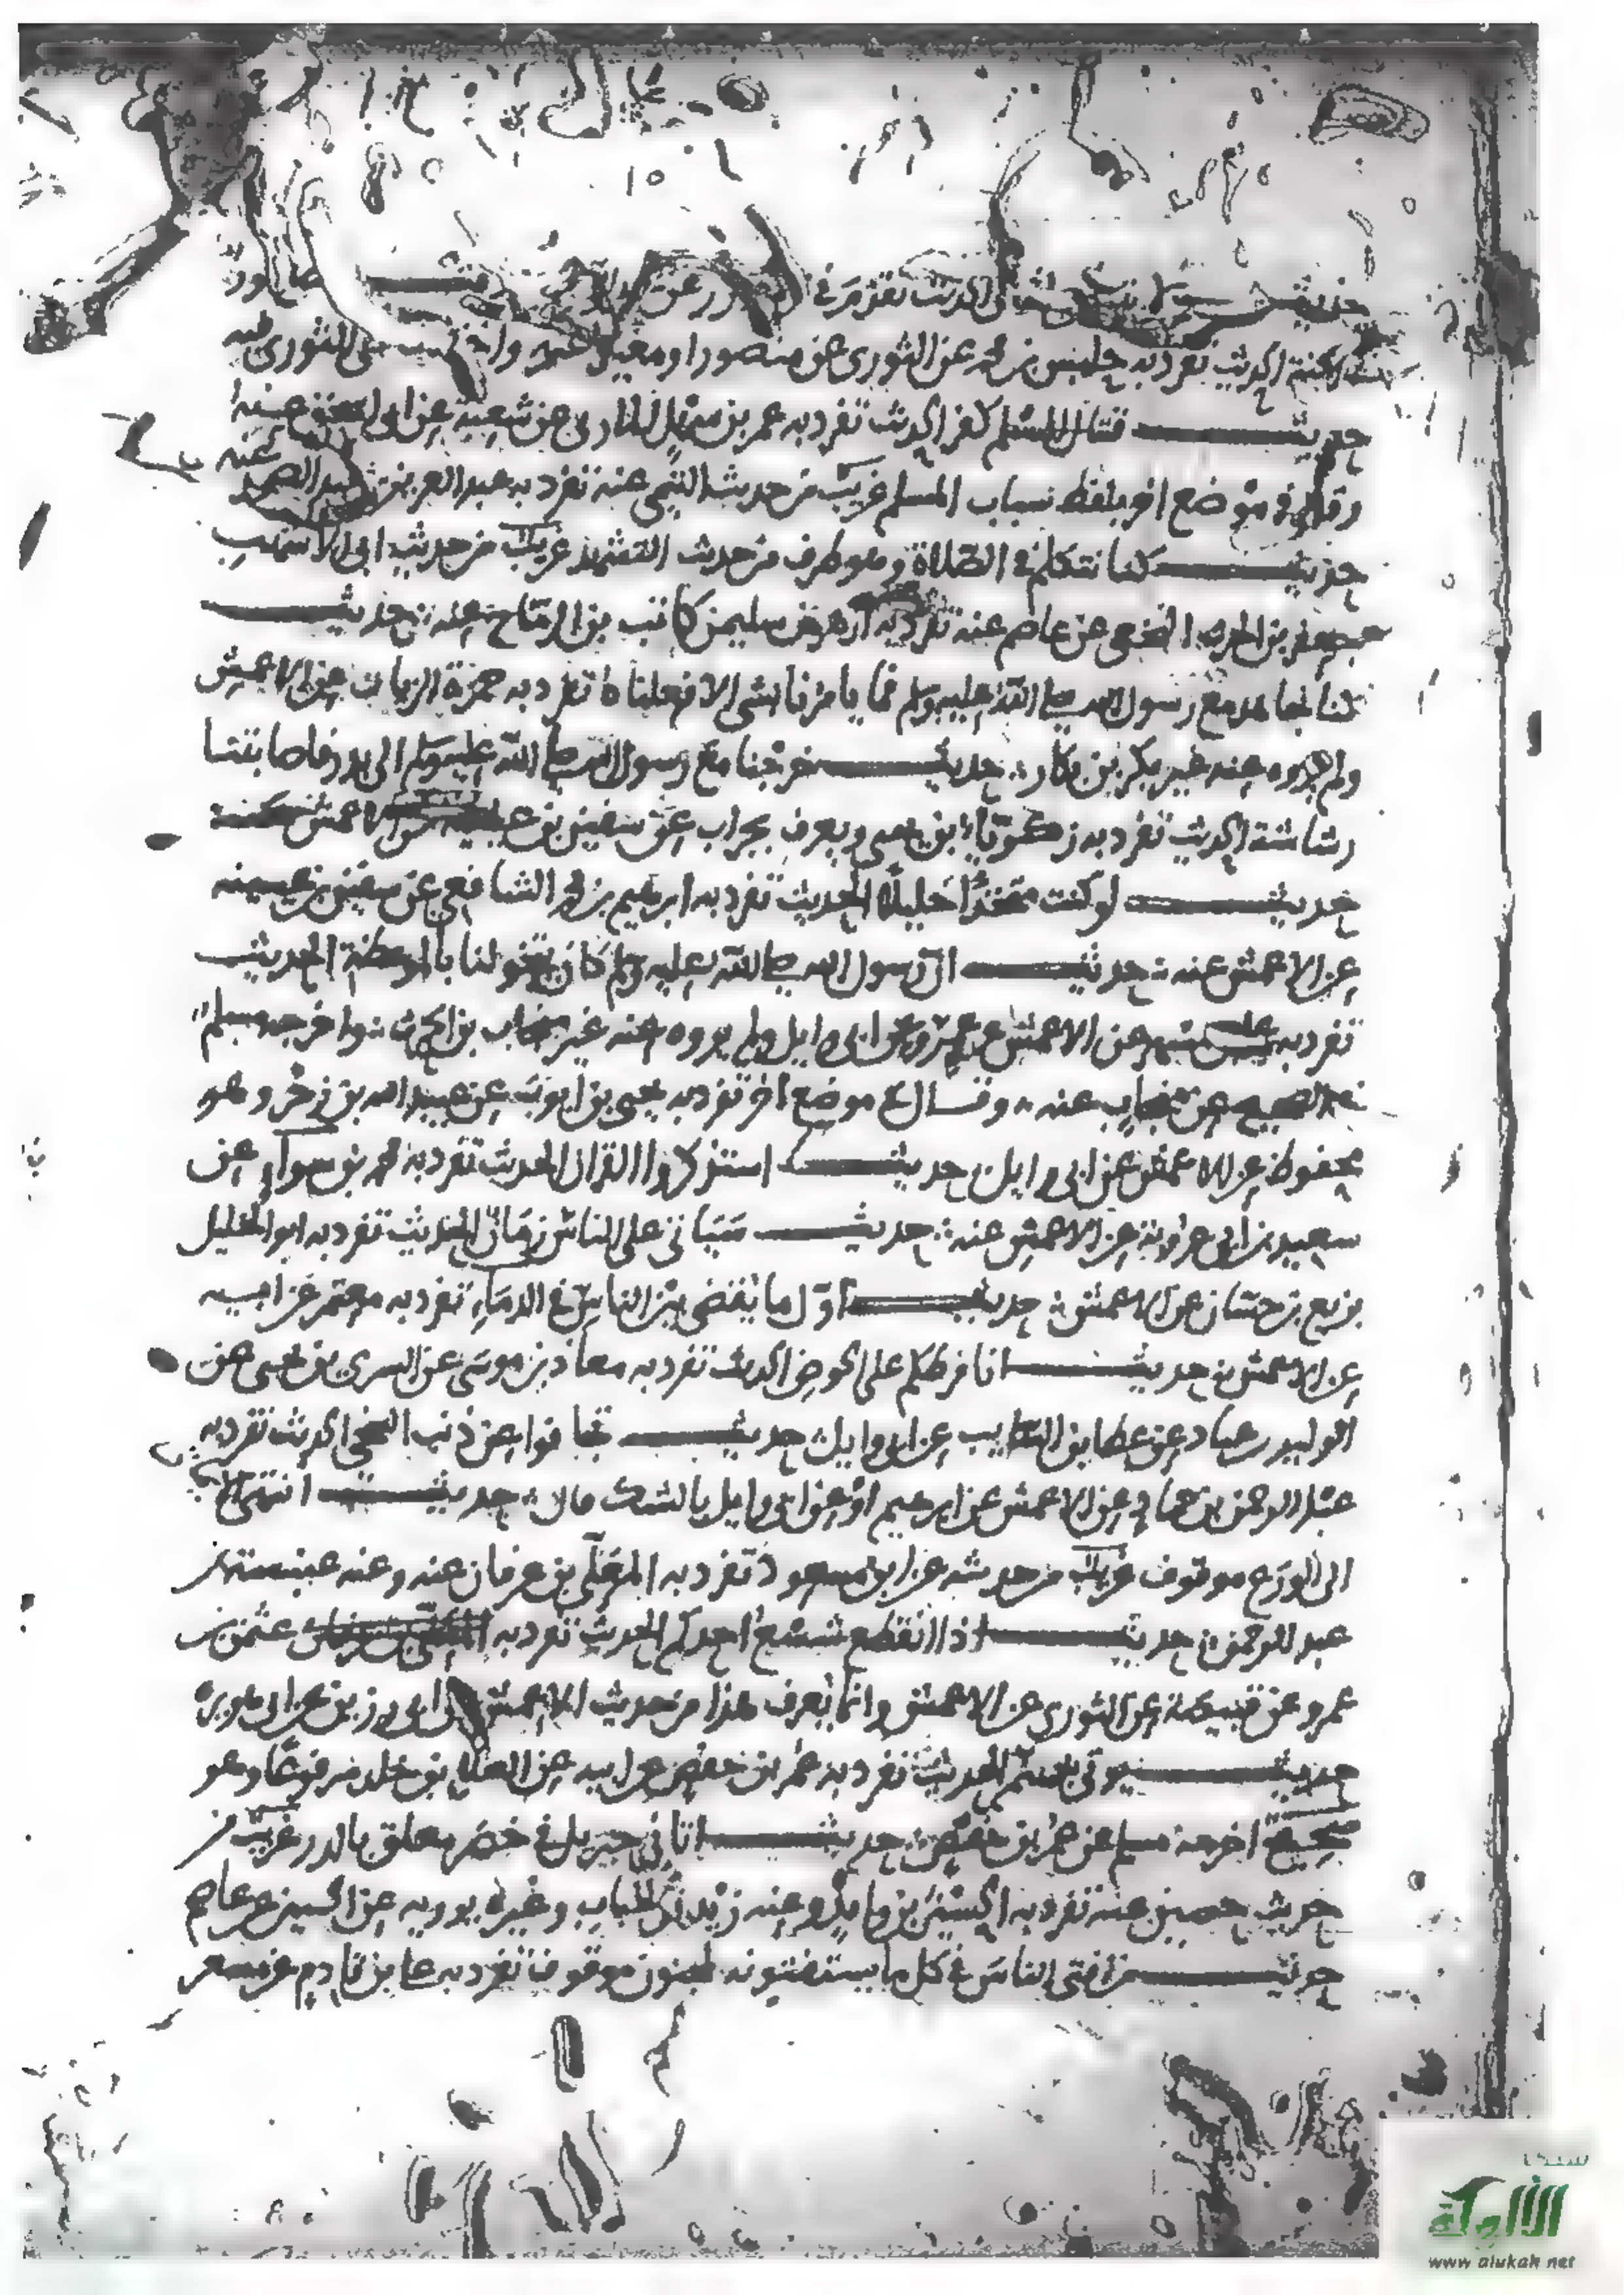 حديث الحديث تقدم في
الحديث تفرد به حلبس بن محمد عن الثوري عن منصور او مغيرة على الثوري فيه
حديث قتال المسلم كفر الحديث تفرد به عمر بن سهل المازني عن شعبة عن ابي اسحق عنه
وقال في موضع اخر بلفظ سباب المسلم غريب من حديث التيمي عنه تفرد به عبد العزيز بن عبد الصمد عنه
حديث كنا نتكلم في الصلاة وهو طرف من حديث التشهد غريب من حديث ابي الاشهب
جعفر بن الحرث النخعي عن عاصم عنه تفرد به ازهر بن سليمن كاتب بن الرماح عنه حديث
كنا نجاهد مع رسول الله صلى الله عليه وسلم فما يامرنا بشي الا فعلناه تفرد به حمزة الزيات عن الاعمش
ولم يروه عنه غير بكر بن بكار حديث خرجنا مع رسول الله صلى الله عليه وسلم الى بدر فاصابتنا
رشاشة الحديث تفرد به زكريا بن يحيى ويعرف بجراب عن سفين بن عيينه عن الاعمش عنه
حديث لو كنت متخذا خليلا الحديث تفرد به ابرهيم بن محمد الشافعي عن سفين بن عيينه
عن الاعمش عنه حديث ان رسول الله صلى الله عليه وسلم كان يتخولنا بالموعظة الحديث
تفرد به علي بن مسهر عن الاعمش عن عمرو عن ابي وايل ولم يروه عنه غير منجاب بن الحرث واخرجه مسلم
في الصحيح عن منجاب عنه وقال في موضع اخر تفرد به يحيى بن ايوب عن عبيد الله بن زحر وهو
محفوظ عن الاعمش عن ابي وايل حديث استذكروا القران الحديث تفرد به محمد بن سواء عن
سعيد بن ابي عروبة عن الاعمش عنه حديث سياتي على الناس زمان الحديث تفرد به ابو الخليل
بزيع بن حسان عن الاعمش حديث اول ما يقضى بين الناس في الدماء تفرد به معتمر عن ابيه
عن الاعمش حديث انا فرطكم على الحوض الحديث تفرد به معاذ بن موسى عن السري بن يحيى عن
الوليد بن عباد عن عطا بن السايب عن ابي وايل حديث تجافوا عن ذنب السخي الحديث تفرد به
عبد الرحمن بن حماد عن الاعمش عن ابرهيم او عن ابي وايل بالشك قال حديث انتهى
الى الورع موقوف غريب من حديثه عن ابن مسعود تفرد به المعلى بن عرفان عنه وعنه عنبسة بن
عبد الرحمن حديث اذا انقطع شسع احدكم الحديث تفرد به عثمن بن
عمرو عن قبيصة عن الثوري عن الاعمش وانما يعرف هذا من حديث الاعمش عن ابي رزين عن ابي هريرة
حديث يوتى بجهنم الحديث تفرد به عمر بن حفص عن ابيه عن العلا بن خلد مرفوعا وهو
صحيح اخرجه مسلم عن عمر بن حفص حديث اتاني جبريل في خضر معلق بالدر غريب من
حديث حصين عنه تفرد به الحسين بن واقد وعنه زيد بن الحباب وغيره يرويه عن الحسين عن عاصم
حديث من افتى الناس في كل ما يستفتونه لمجنون موقوف تفرد به علي بن قادم عن مسعر
الألوكة
www alukah net